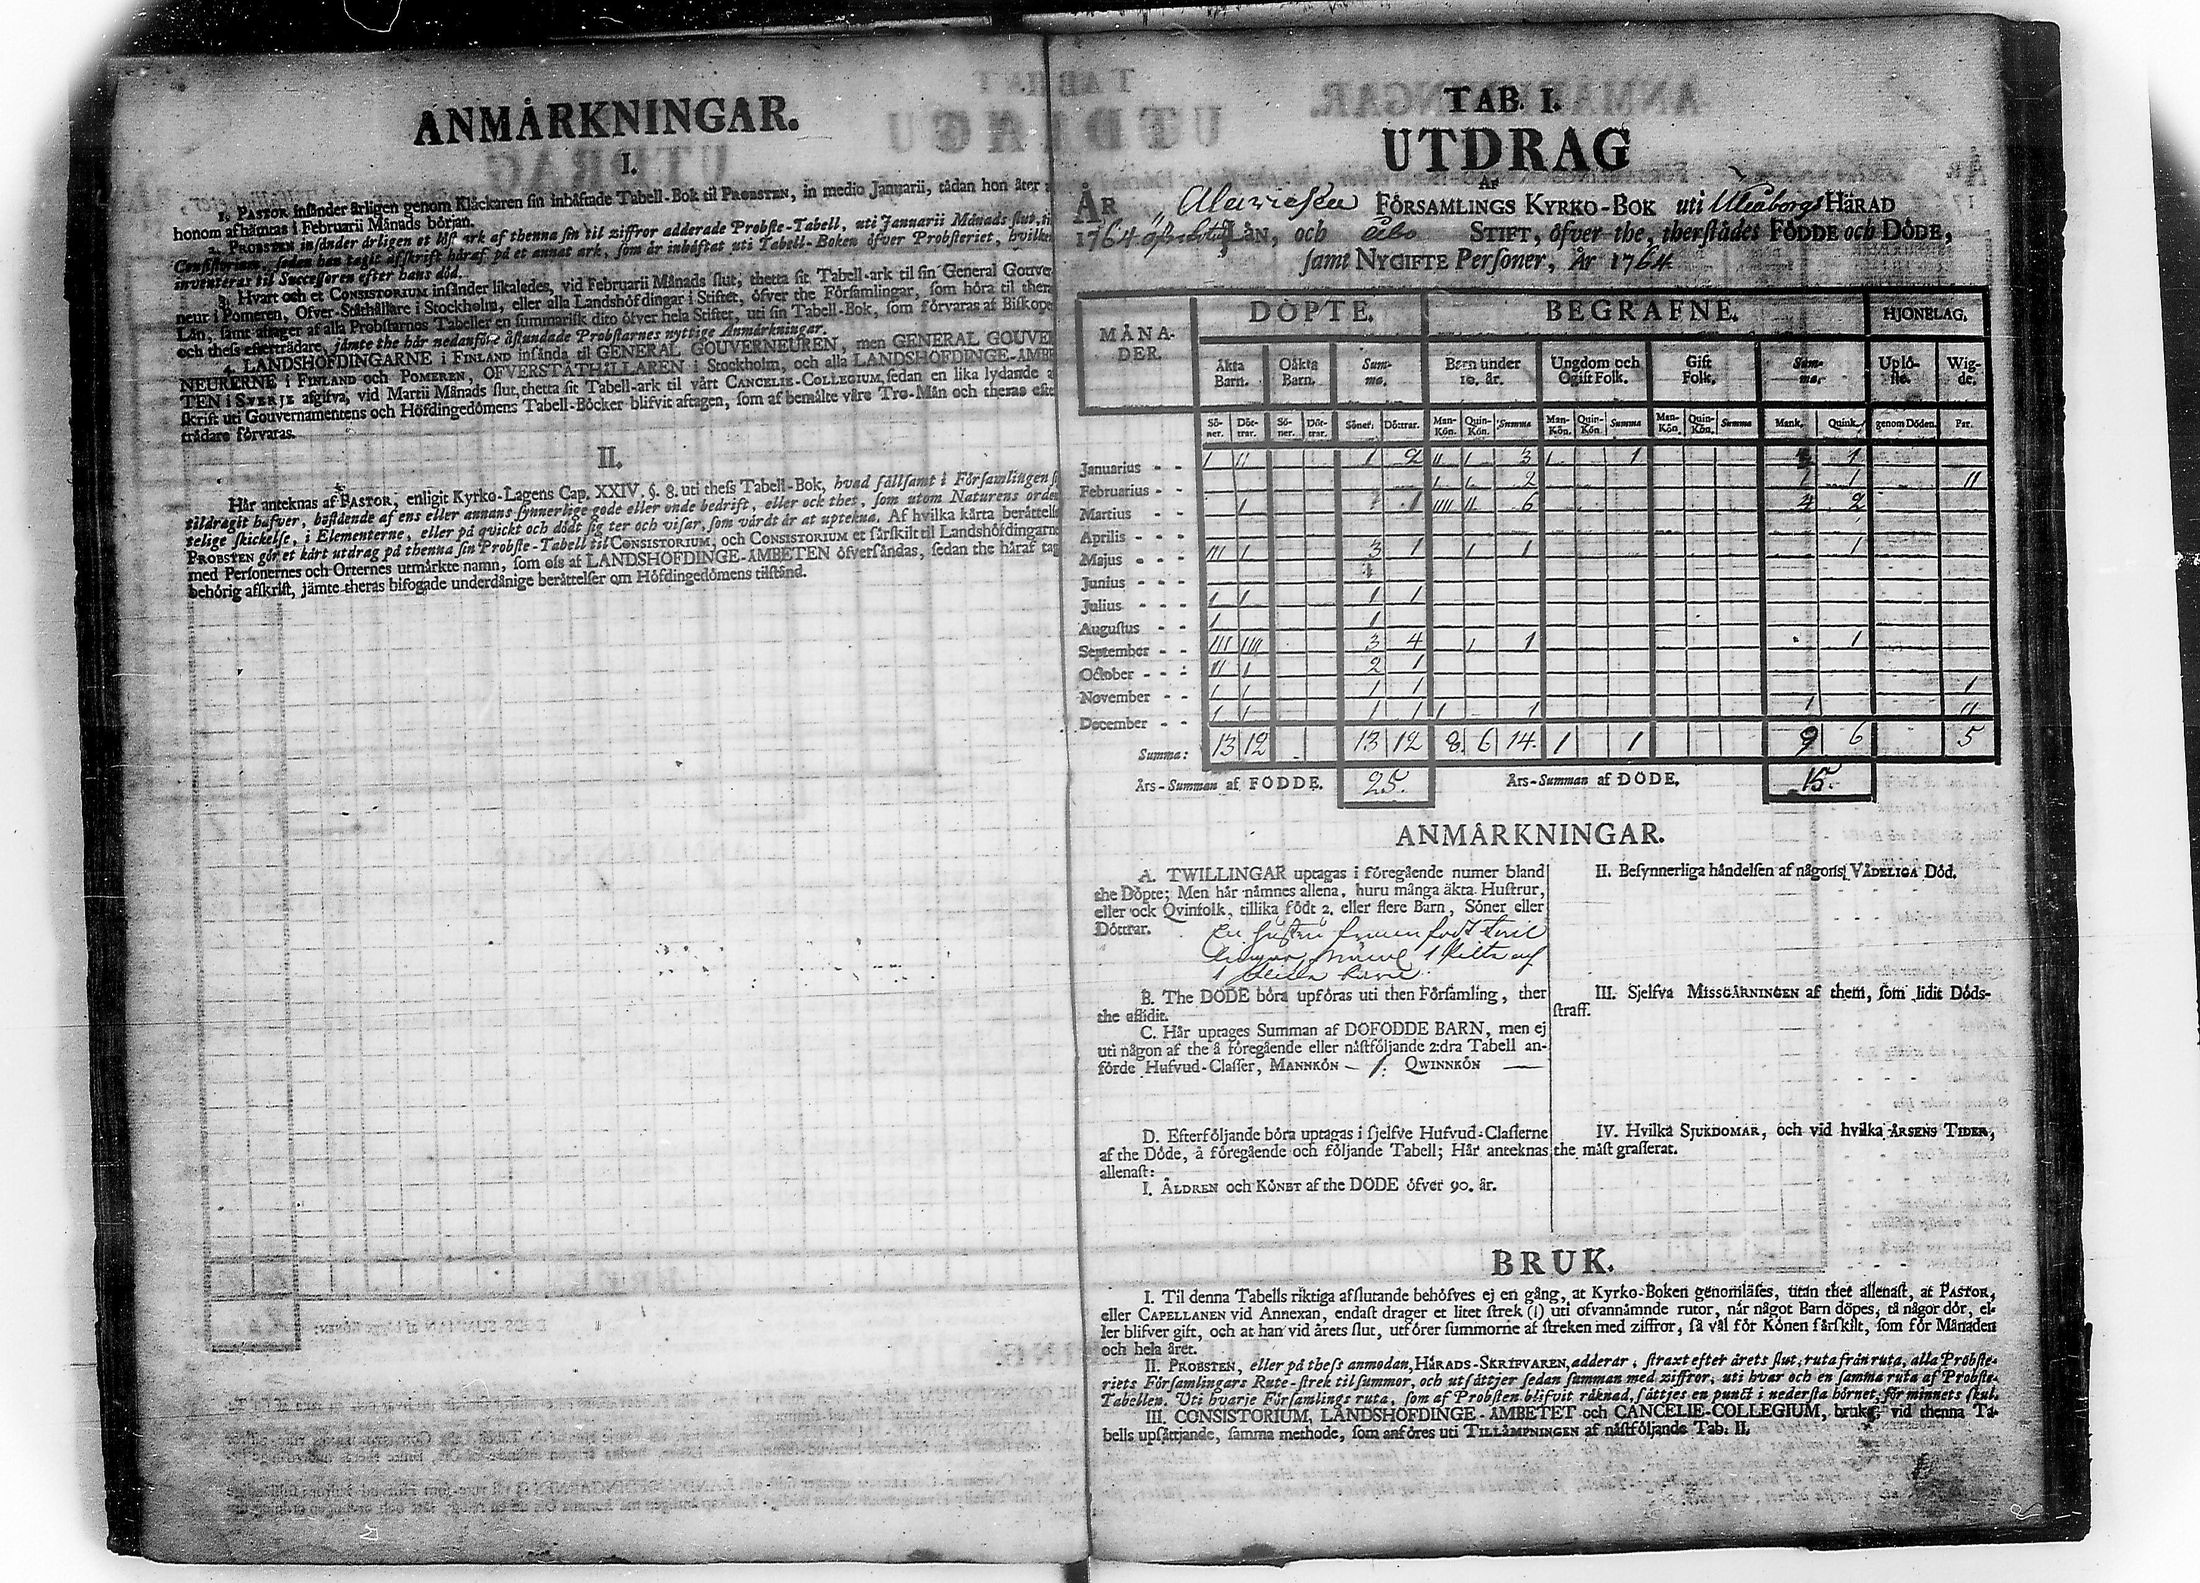 ANMÄRKNINGAR.
I.
1. PASTOR insänder årligen genom Klåckaren sin inhäftade Tabell-Bok til PROBSTEN, in medio Januarii, tådan hon åter
honom afhämtas i Februarii Månads början.
2. PROBSTEN insänder årligen et löst ark af thenna sin til ziffror adderade Probste-Tabell, uti Januarii Månads slut, til
Consistorium, sedan han tagit afskrift häraf på et annat ark, som är inhäftat uti Tabell-Boken öfver Probsteriet, hvilken
inventeras til Successoren efter hans död.
3. Hvart och et CONSISTORIUM insänder likaledes, vid Februarii Månads slut, thetta sit Tabell-ark til sin General Gouver-
neur i Pomeren, Öfver-Ståthållare i Stockholm, eller alla Landshöfdingar i Stiftet, öfver the Församlingar, som höra til theras
Län, samt aftager af alla Probstarnes Tabeller en summarisk dito öfver hela Stiftet, uti sin Tabell-Bok, som förvaras af Biskopen
och thess efterträdare, jämte the här nedanföre åstundade Probstarnes nyttige Anmärkningar.
4. LANDSHÖFDINGARNE i FINLAND insända til GENERAL GOUVERNEUREN, men GENERAL GOUVER-
NEURERNE i FINLAND och POMEREN, ÖFVERSTÅTHÅLLAREN i Stockholm, och alla LANDSHÖFDINGE-ÄMBE-
TEN i SVERJE afgifva, vid Martii Månads slut, thetta sit Tabell-ark til vårt CANCELIE-COLLEGIUM, sedan en lika lydande af-
skrift uti Gouvernamentens och Höfdingedömens Tabell-Böcker blifvit aftagen, som af bemälte våre Tro-Män och theras efter-
trädare förvaras.
II.
Här anteknas af PASTOR, enligit Kyrko-Lagens Cap. XXIV. §. 8. uti thess Tabell-Bok, hvad sällsamt i Församlingen sig
tildragit hafver, bestående af ens eller annans synnerlige gode eller onde bedrift, eller ock thet, som utom Naturens orden-
telige skickelse, i Elementerne, eller på quickt och dödt sig ter och visar, som värdt är at uptekna. Af hvilka kårta berättelser
PROBSTEN gör et kårt utdrag på thenna sin Probste-Tabell til CONSISTORIUM, och CONSISTORIUM et särskilt til Landshöfdingarne
med Personernes och Orternes utmärkte namn, som oss af LANDSHÖFDINGE-ÄMBETEN öfversändas, sedan the häraf tagit
behörig afskrift, jämte theras bifogade underdånige berättelser om Höfdingedömens tilstånd.
TAB. I.
UTDRAG
AF
ÅR FÖRSAMLINGS KYRKO-BOK uti Uleåborgs HÄRAD
1764 LÄN, och Åbo STIFT, öfver the, therstädes FÖDDE och DÖDE,
samt NYGIFTE Personer, År 1764
MÅNA-DER. DÖPTE. BEGRAFNE. HJONELAG.
Äkta Barn. Oäkta Barn. Summa. Barn under 10. år. Ungdom och Ogift Folk. Gift Folk. Summa. Uplöste. Wigde.
Söner. Döttrar. Söner. Döttrar. Söner. Döttrar. Man-Kön. Quin-Kön. Summa Man-Kön. Quin-Kön. Summa Man-Kön. Quin-Kön. Summa Mank. Quink. genom Döden. Par.
Januarius - - I II 1 2 II I 3 I 1 1
Februarius - - I I 2 1 1 II
Martius - - I 1 IIII II 6 4 2
Aprilis - - -
Majus - - III I 3 1 I 1 1
Junius - - -
Julius - - - I I 1 1
Augustus - - I 1
September - - III IIII 3 4 I 1 1
October - - - II I 2 1
November - - I I 1 1 I
December - - I I 1 1 I 1 1 II
Summa: 13 12 13 12 8. 6 14. 1 1 9 6 5
Års-Summan af FÖDDE. 25. Års-Summan af DÖDE. 15.
ANMÄRKNINGAR.
A. TWILLINGAR uptagas i föregående numer bland
the Döpte; Men här nämnes allena, huru många äkta Hustrur,
eller ock Qvinfolk, tillika födt 2. eller flere Barn, Söner eller
Döttrar. En hustru
B. The DÖDE böra upföras uti then Församling, ther
the aflidit.
C. Här uptages Summan af DÖFÖDDE BARN, men ej
uti någon af the å föregående eller nästföljande 2:dra Tabell an-
förde Hufvud-Classer, MANNKÖN — 1. QWINNKÖN —
D. Efterföljande böra uptagas i sjelfve Hufvud-Classerne
af the Döde, å föregående och följande Tabell; Här anteknas
allenast:
I. ÅLDREN och KÖNET af the DÖDE öfver 90. år.
II. Besynnerliga händelsen af någons VÅDELIGA Död.
III. Sjelfva MISSGÄRNINGEN af them, som lidit Döds-
straff.
IV. Hvilka SJUKDOMAR, och vid hvilka ÅRSENS TIDER,
the mäst grasserat.
BRUK.
I. Til denna Tabells riktiga afslutande behöfves ej en gång, at Kyrko-Boken genomläses, utan thet allenast, at PASTOR,
eller CAPELLANEN vid Annexan, endast drager et litet strek (|) uti ofvannämnde rutor, när något Barn döpes, tå någor dör, el-
ler blifver gift, och at han vid årets slut, utförer summorne af streken med ziffror, så väl för Könen särskilt, som för Månaden
och hela året.
II. PROBSTEN, eller på thess anmodan, HÄRADS-SKRIFVAREN, adderar, straxt efter årets slut, ruta från ruta, alla Probste-
riets Församlingars Rute-strek til summor, och utsättjer sedan summan med ziffror, uti hvar och en samma ruta af Probste-
Tabellen. Uti hvarje Församlings ruta, som af Probsten blifvit räknad, sättjes en punct i nedersta hörnet, för minnets skul.
III. CONSISTORIUM, LANDSHÖFDINGE-ÄMBETET och CANCELIE-COLLEGIUM, bruke vid thenna Ta-
bells upsättjande, samma methode, som anföres uti TILLÄMPNINGEN af nästföljande Tab. II.